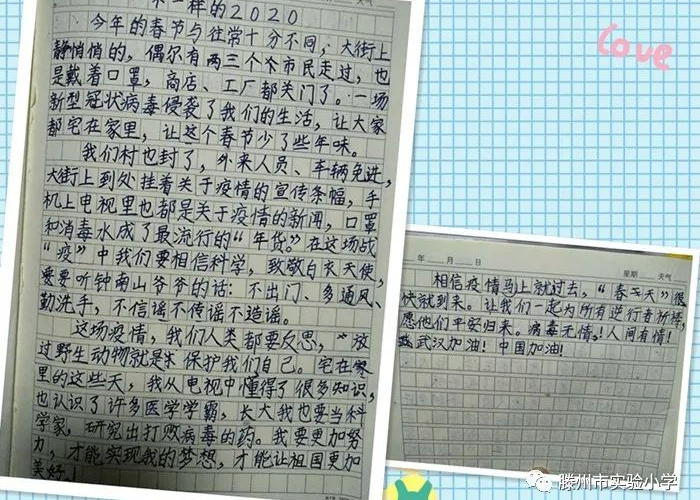 不一样的2020
今年的春节与往常十分不同，大街上
静悄悄的，偶尔有两三个个市民走过，也
是戴着口罩，商店、工厂都关门了。一场
新型冠状病毒侵袭了我们的生活，让大家
都宅在家里，让这个春节少了些年味。
我们村也封了，外来人员、车辆免进，
大街上到处挂着关于疫情的宣传条幅，手
机上电视里也都是关于疫情的新闻，口罩
和消毒水成了最流行的“年货”。在这场战
“疫”中我们要相信科学，致敬白衣天使，
要听钟南山爷爷的话：不出门、多通风、
勤洗手，不信谣不传谣不造谣。
这场疫情，我们人类都要反思，“放
过野生动物就是保护我们自己。宅在家
里的这些天，我从电视中懂得了很多知识，
也认识了许多医学学霸，长大我也要当科
学家，研究出打败病毒的药。我要更加努
力，才能实现我的梦想，才能让祖国更加
美好！
年 月 日 星期 天气
相信疫情马上就过去，“春天”很
快就到来。让我们一起为所有逆行者祈祷，
愿他们平安归来。病毒无情！人间有情！
武汉加油！中国加油！
Love
滕州市实验小学